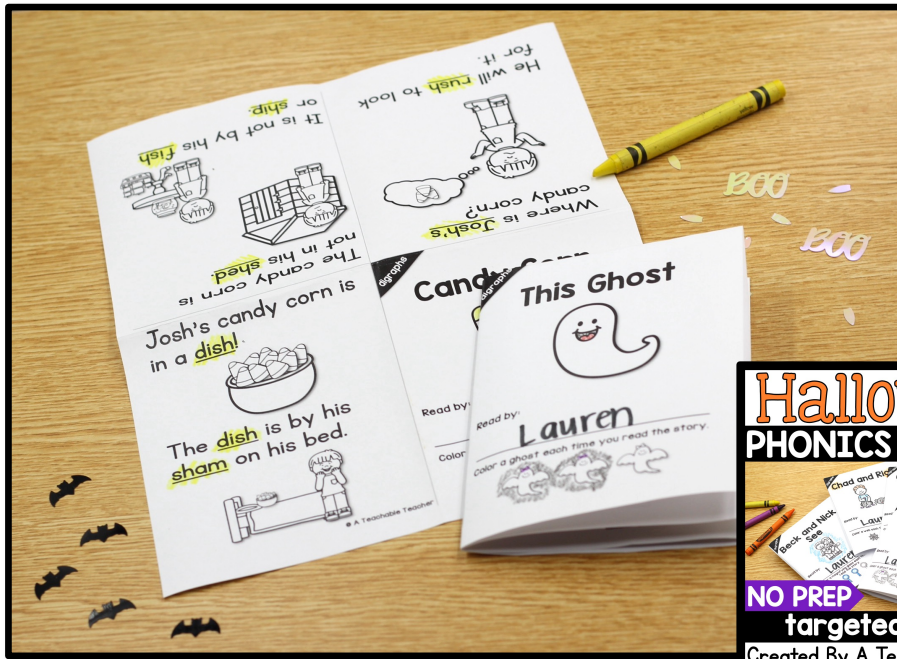 He will rush to look
for it.
Where is Josh's
candy corn?
It is not by his fish
or ship.
The candy corn is
not in his shed.
Josh's candy corn is
in a dish!
The dish is by his
sham on his bed.
© A Teachable Teacher
digraphs
Candy Corn
Read by:
Color
digraphs
This Ghost
Read by:
Lauren
Color a ghost each time you read the story.
BOO
BOO
Hallo
PHONICS
Chad and Ric
Beck and Nick
See
Lauren
NO PREP
targeted
Created By A Te